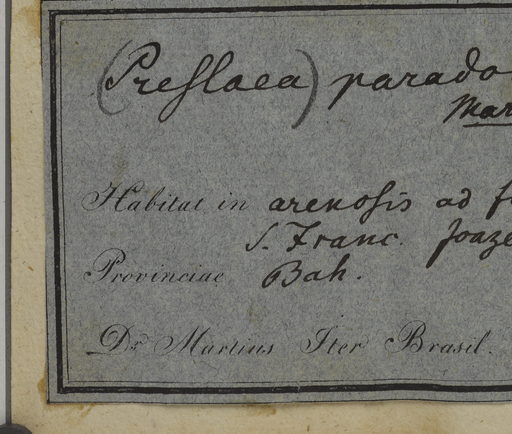 (Preslaea) parado
Mar
Habitat in arenosis ad f
S. Franc. Joaze
Provinciae Bah.
Dr. Martius Iter Brasil.